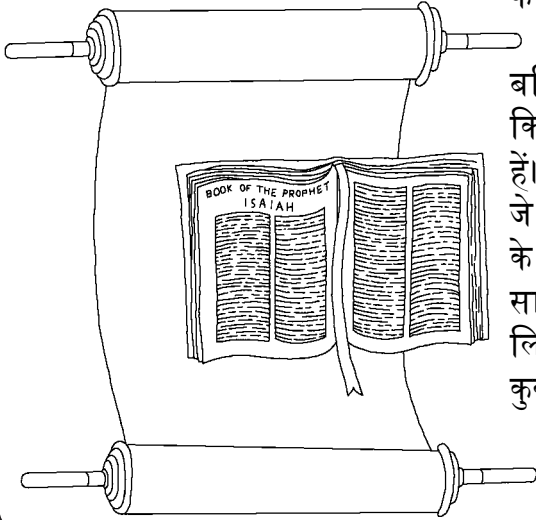 BOOK OF THE PROPHET
ISAIAH
कि
हैं।
जे
के
सा
लि